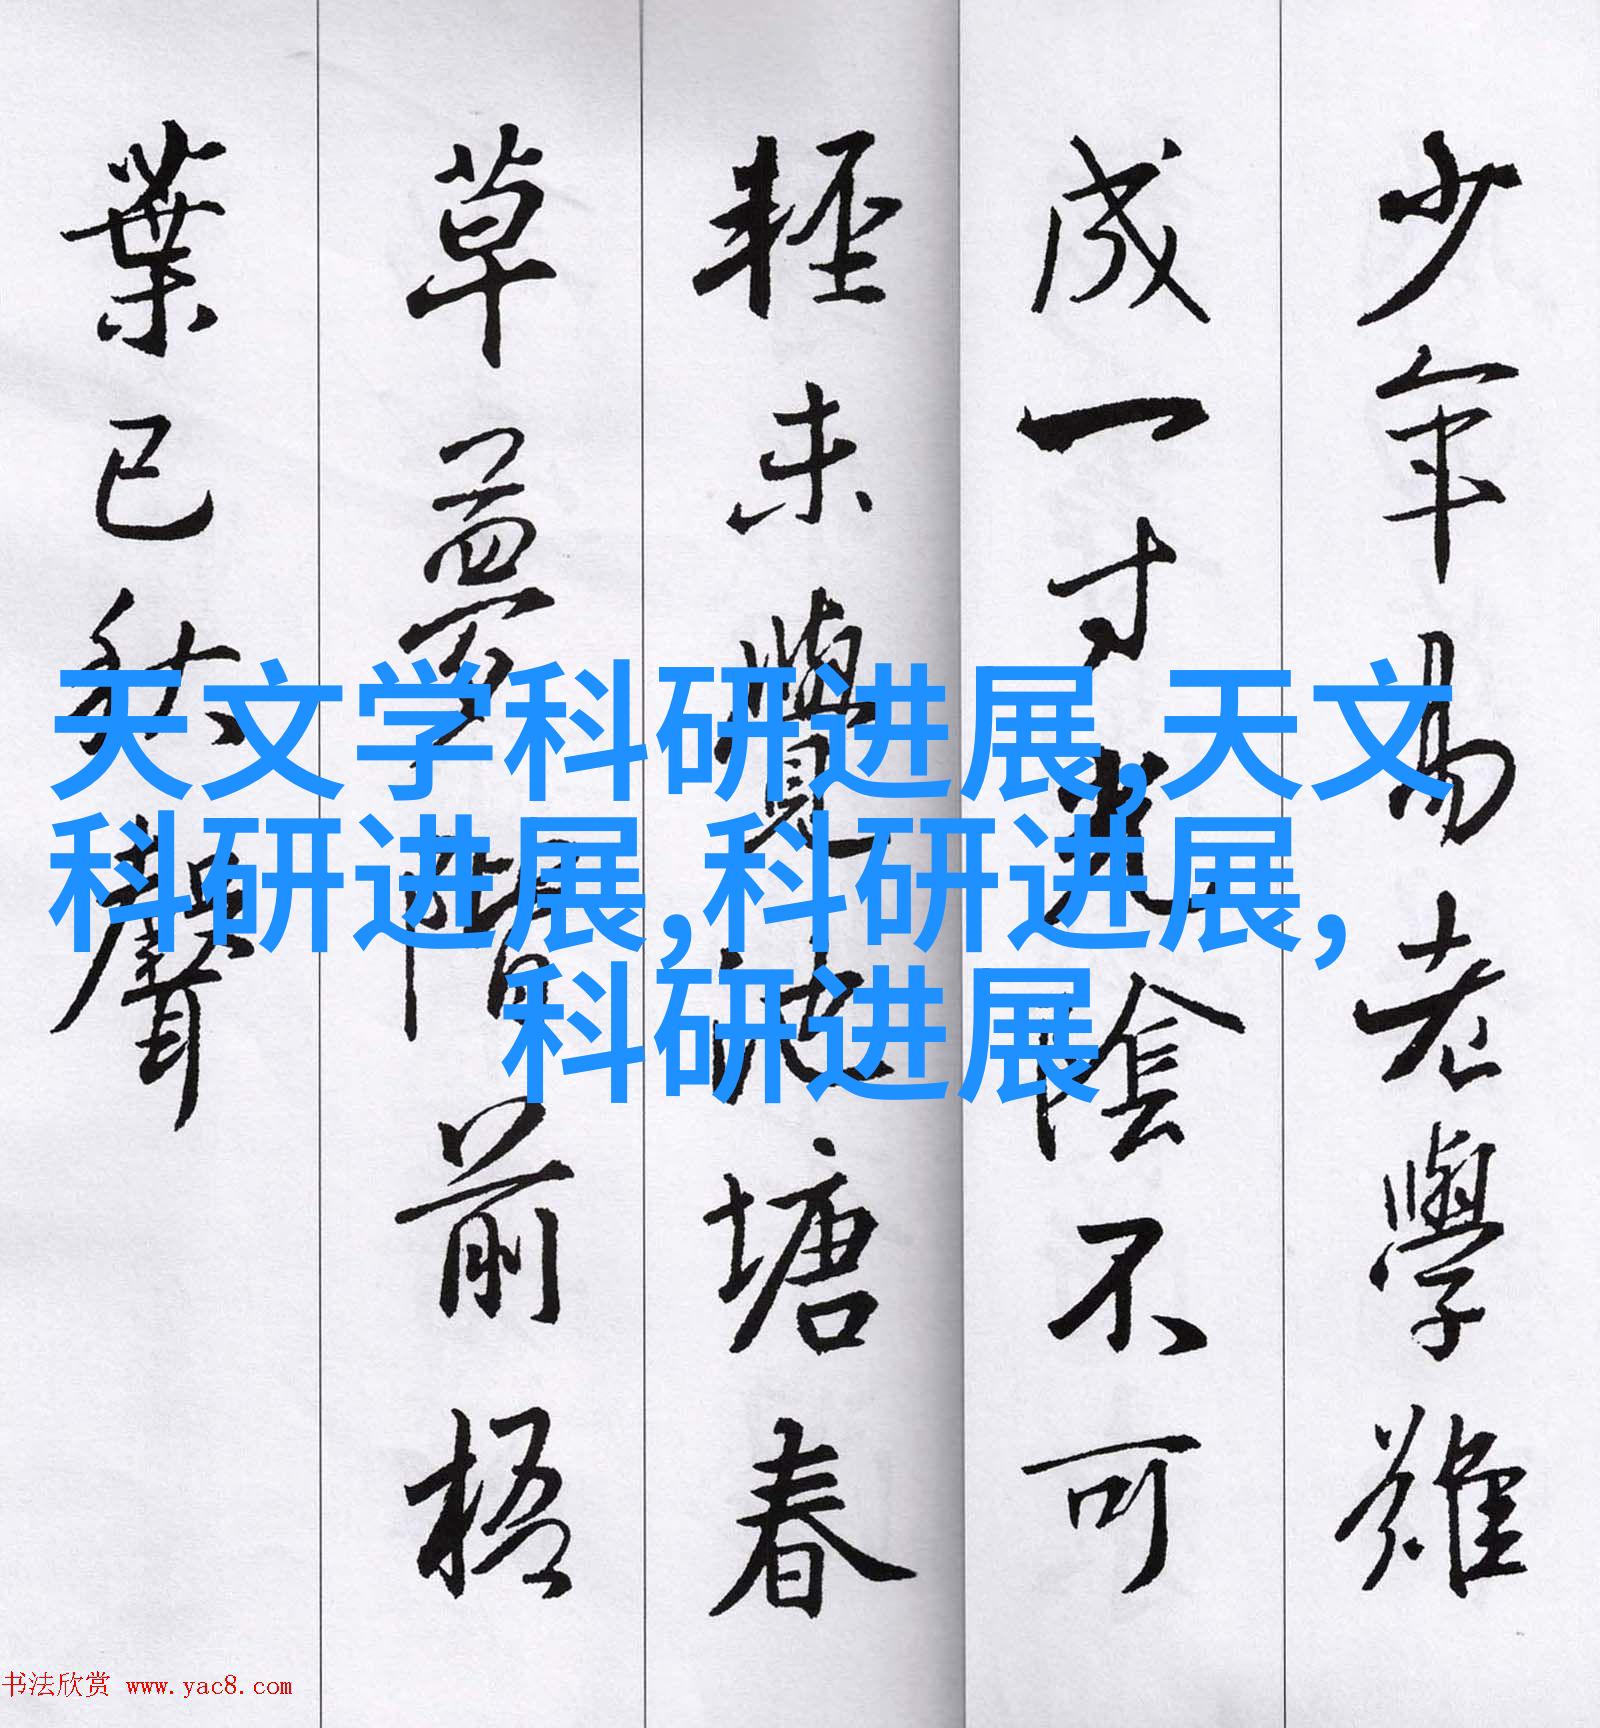 少年易老學難
成一寸光陰不可
輕未覺池塘春
草夢階前梧
葉已秋聲
天文学科研进展,天文
科研进展,科研进展,
科研进展
书法欣赏 www.yac8.com